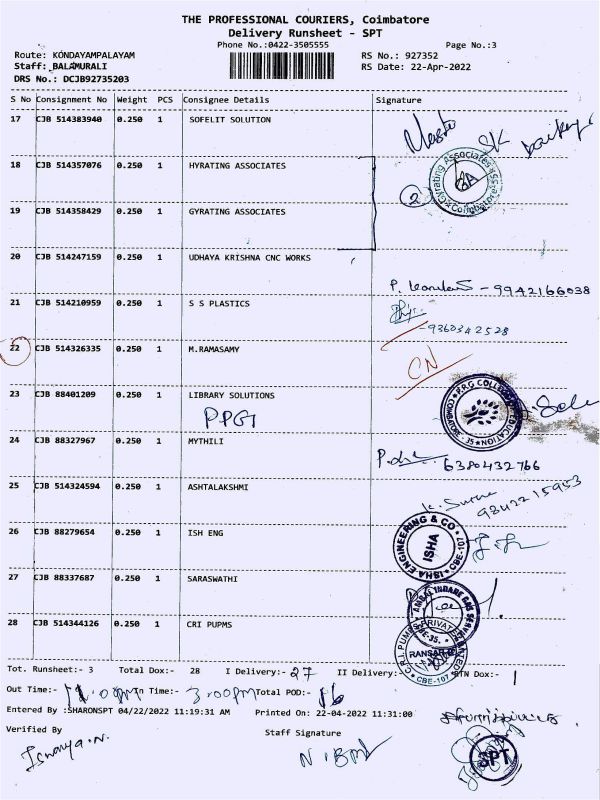 THE PROFESSIONAL COURIERS, Coimbatore
Delivery Runsheet - SPT
Phone No.:0422-3505555
Page No.:3
Route: KONDAYAMPALAYAM
RS No.: 927352
Staff: BALAMURALI
RS Date: 22-Apr-2022
DRS No.: DCJB92735203
S No Consignment No Weight PCS Consignee Details Signature
17 CJB 514383940 0.250 1 SOFELIT SOLUTION
18 CJB 514357076 0.250 1 HYRATING ASSOCIATES
2
Gyrating Associates Coimbatore GA
19 CJB 514358429 0.250 1 GYRATING ASSOCIATES
20 CJB 514247159 0.250 1 UDHAYA KRISHNA CNC WORKS
- 9942166038
21 CJB 514210959 0.250 1 S S PLASTICS
- 9360342528
22 CJB 514326335 0.250 1 M.RAMASAMY
CN
23 CJB 88401209 0.250 1 LIBRARY SOLUTIONS
PPG1
24 CJB 88327967 0.250 1 MYTHILI
6380432766
25 CJB 514324594 0.250 1 ASHTALAKSHMI
9842215953
26 CJB 88279654 0.250 1 ISH ENG
ISHA ENGINEERING & CO CBE-107 ISHA
27 CJB 88337687 0.250 1 SARASWATHI
28 CJB 514344126 0.250 1 CRI PUPMS
CBE-107
Tot. Runsheet:- 3 Total Dox:- 28 I Delivery:- 27 II Delivery:- RTN Dox:- 1
Out Time:- In Time:- 3:00pm Total POD:- 16
Entered By :SHARONSPT 04/22/2022 11:19:31 AM Printed On: 22-04-2022 11:31:00
Verified By
Staff Signature
SPT